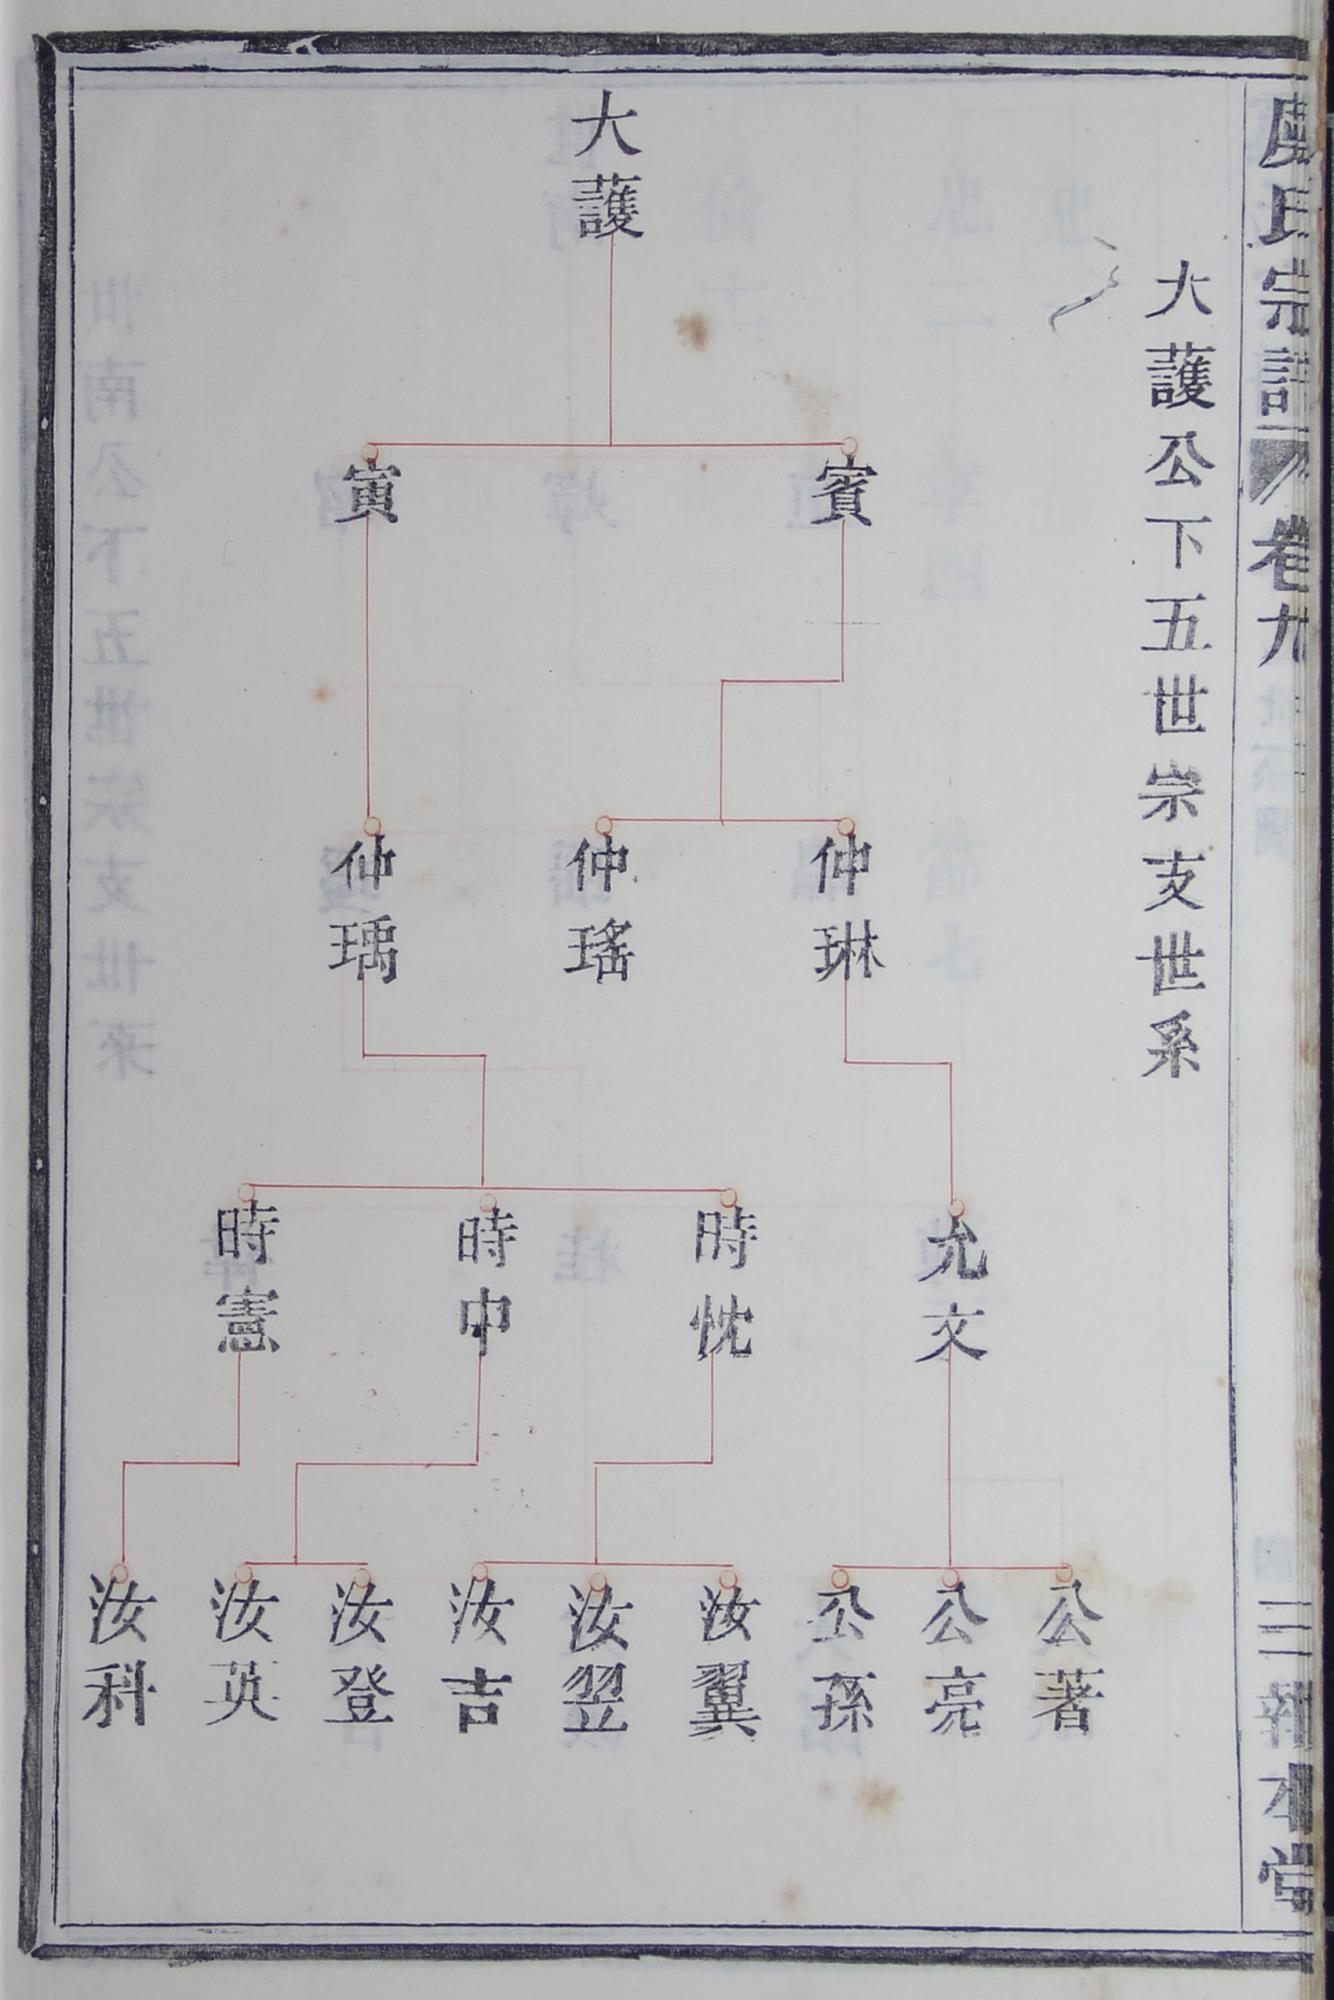 氏宗譜 卷九
三 報本堂
大護公下五世宗支世系
大護
賓
寅
仲琳
仲瑤
仲瑀
允文
時忱
時中
時憲
公著
公亮
公孫
汝翼
汝翌
汝吉
汝登
汝英
汝科